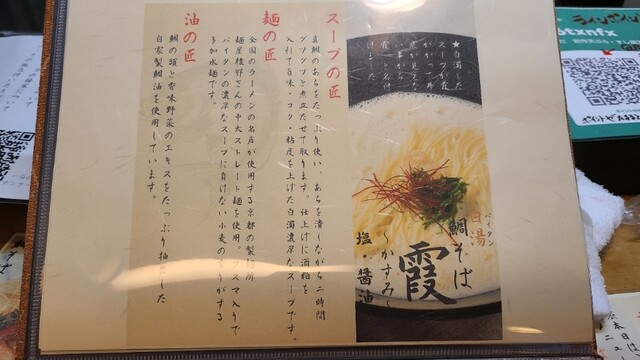 スープの匠
真鯛のあらをたっぷり使い、あらを潰しながら二時間
グツグツと煮立たせて取ります。仕上げに酒粕を
入れて旨味・コク・粘度を上げた白濁濃厚なスープです。
麺の匠
全国のラーメンの名店が使用する京都の製麺所
麺屋棣鄂さんの中太ストレート麺を使用。フスマ入りで
パイタンの濃厚なスープに負けない小麦の
多加水麺です。
油の匠
鯛の頭と香味野菜のエキスをたっぷり抽出した
自家製鯛油を使用しています。
★白濁した
スープが霞
白湯
パイタン
鯛そば
霞
〜かすみ〜
塩・醤油